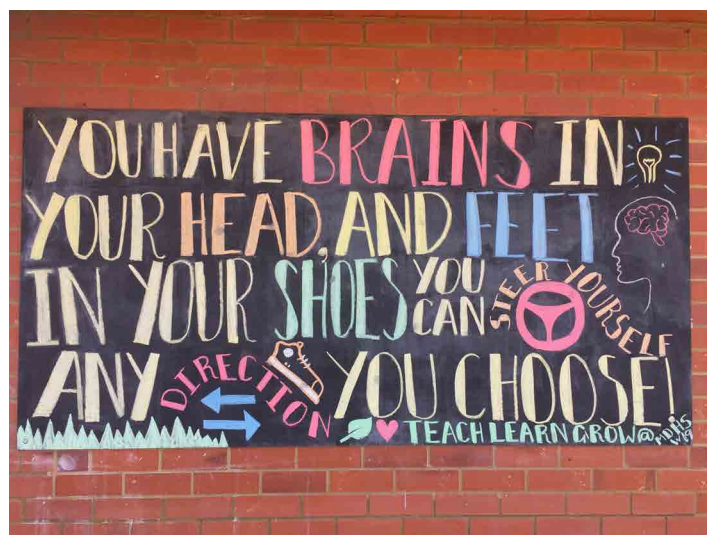 YOU HAVE BRAINS IN
YOUR HEAD, AND FEET
IN YOUR SHOES YOU CAN STEER YOURSELF
ANY DIRECTION YOU CHOOSE!
TEACH LEARN GROW @